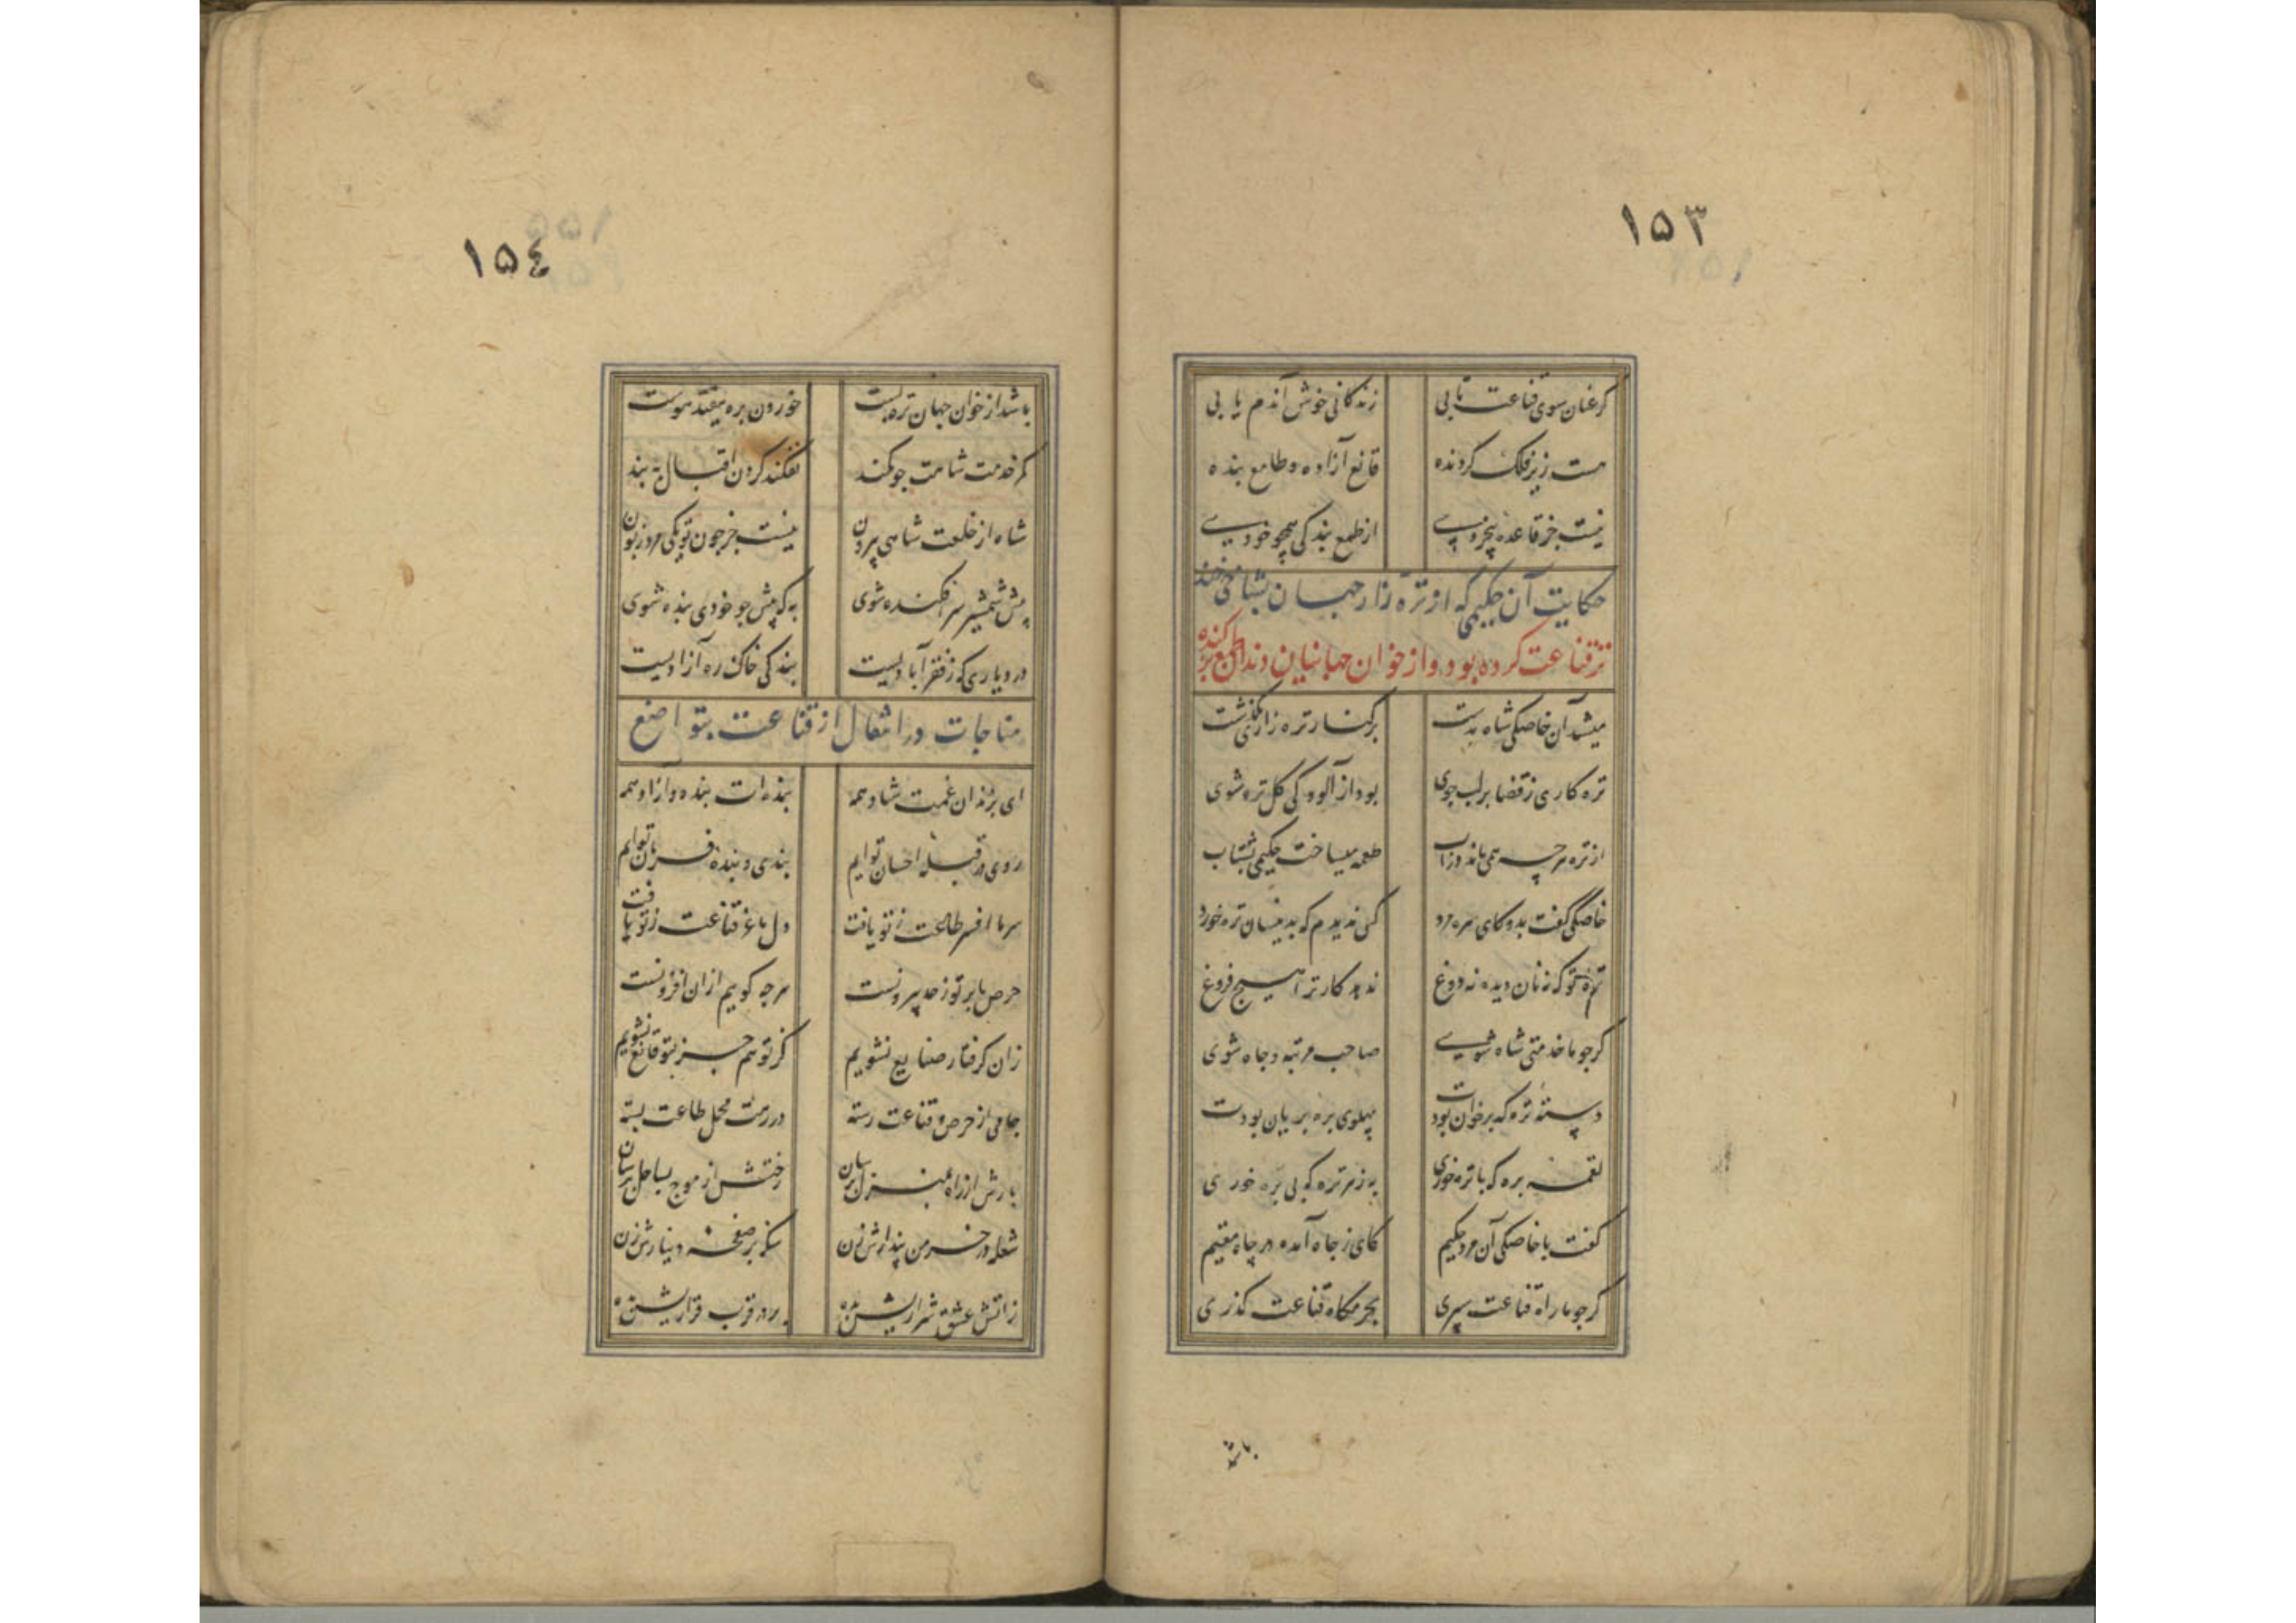 ۱۵۳
گر عنان سوی قناعت تابی زندگانی خوش آندم یابی
هست زیر فلک گردنده قانع آزاده و طامع بنده
نیست جز قاعده بیخردی از طمع بندگی همچو خودی
حکایت آن حکیمی که از تره زار جهان بشاخی چند
تره قناعت کرده بود و از خوان جهانیان دندان طمع برکنده
میشد آن خاصگی شاه بدشت بر کنار تره زاری بگذشت
تره کاری ز قضا بر لب جوی بود از آلودگی گل تره شوی
از تره هر چه همی ماند در آب طعمه میساخت حکیمی بشتاب
خاصگی گفت بدو کای سره مرد کس ندیدم که بدینسان تره خورد
تره تو که نه نان دیده نه دوغ ندهد کار ترا هیچ فروغ
گر چو ما خدمتی شاه شوی صاحب مرتبه و جاه شوی
دسته تره که بر خوان بودت پهلوی بره بریان بودت
لقمه بره که با تره خوری به ز هر تره که بی بره خوری
گفت با خاصگی آن مرد حکیم کای ز جاه آمده در چاه مقیم
گر چو ما راه قناعت سپری بحرمگاه قناعت گذری
باشد
۱۵٤
باشد از خوان جهان تره بست خوردن بره نیفتد هوست
کمر خدمت شاهت چو کمند نفکند گردن اقبال به بند
شاه از خلعت شاهی بیرون نیست جز چون تو یکی مرد زبون
پیش شمشیر سر افکنده شوی به که پیش چو خودی بنده شوی
در دیاری که ز فقر آبادیست بندگی خاک ره آزادیست
مناجات در انتقال از قناعت بتواضع
ای بزندان غمت شاد همه بنده ات بنده و آزاد همه
روی در قبله احسان توایم بندی و بنده فرمان توایم
سر ما افسر طاعت ز تو یافت دل ما غ قناعت ز تو یافت
حرص ما بر تو ز حد بیرونست هر چه گوییم از آن افزونست
زان گرفتار صنایع نشویم کز تو هم جز بتو قانع نشویم
جامی از حرص و قناعت رسته در رهت محمل طاعت بسته
بارش از راه بمنزل برسان رختش از موج بساحل برسان
شعله در خرمن پندارش زن سکه بر صفحه دینارش زن
ز آتش عشق شراریش بده بر در قرب قراریش بده